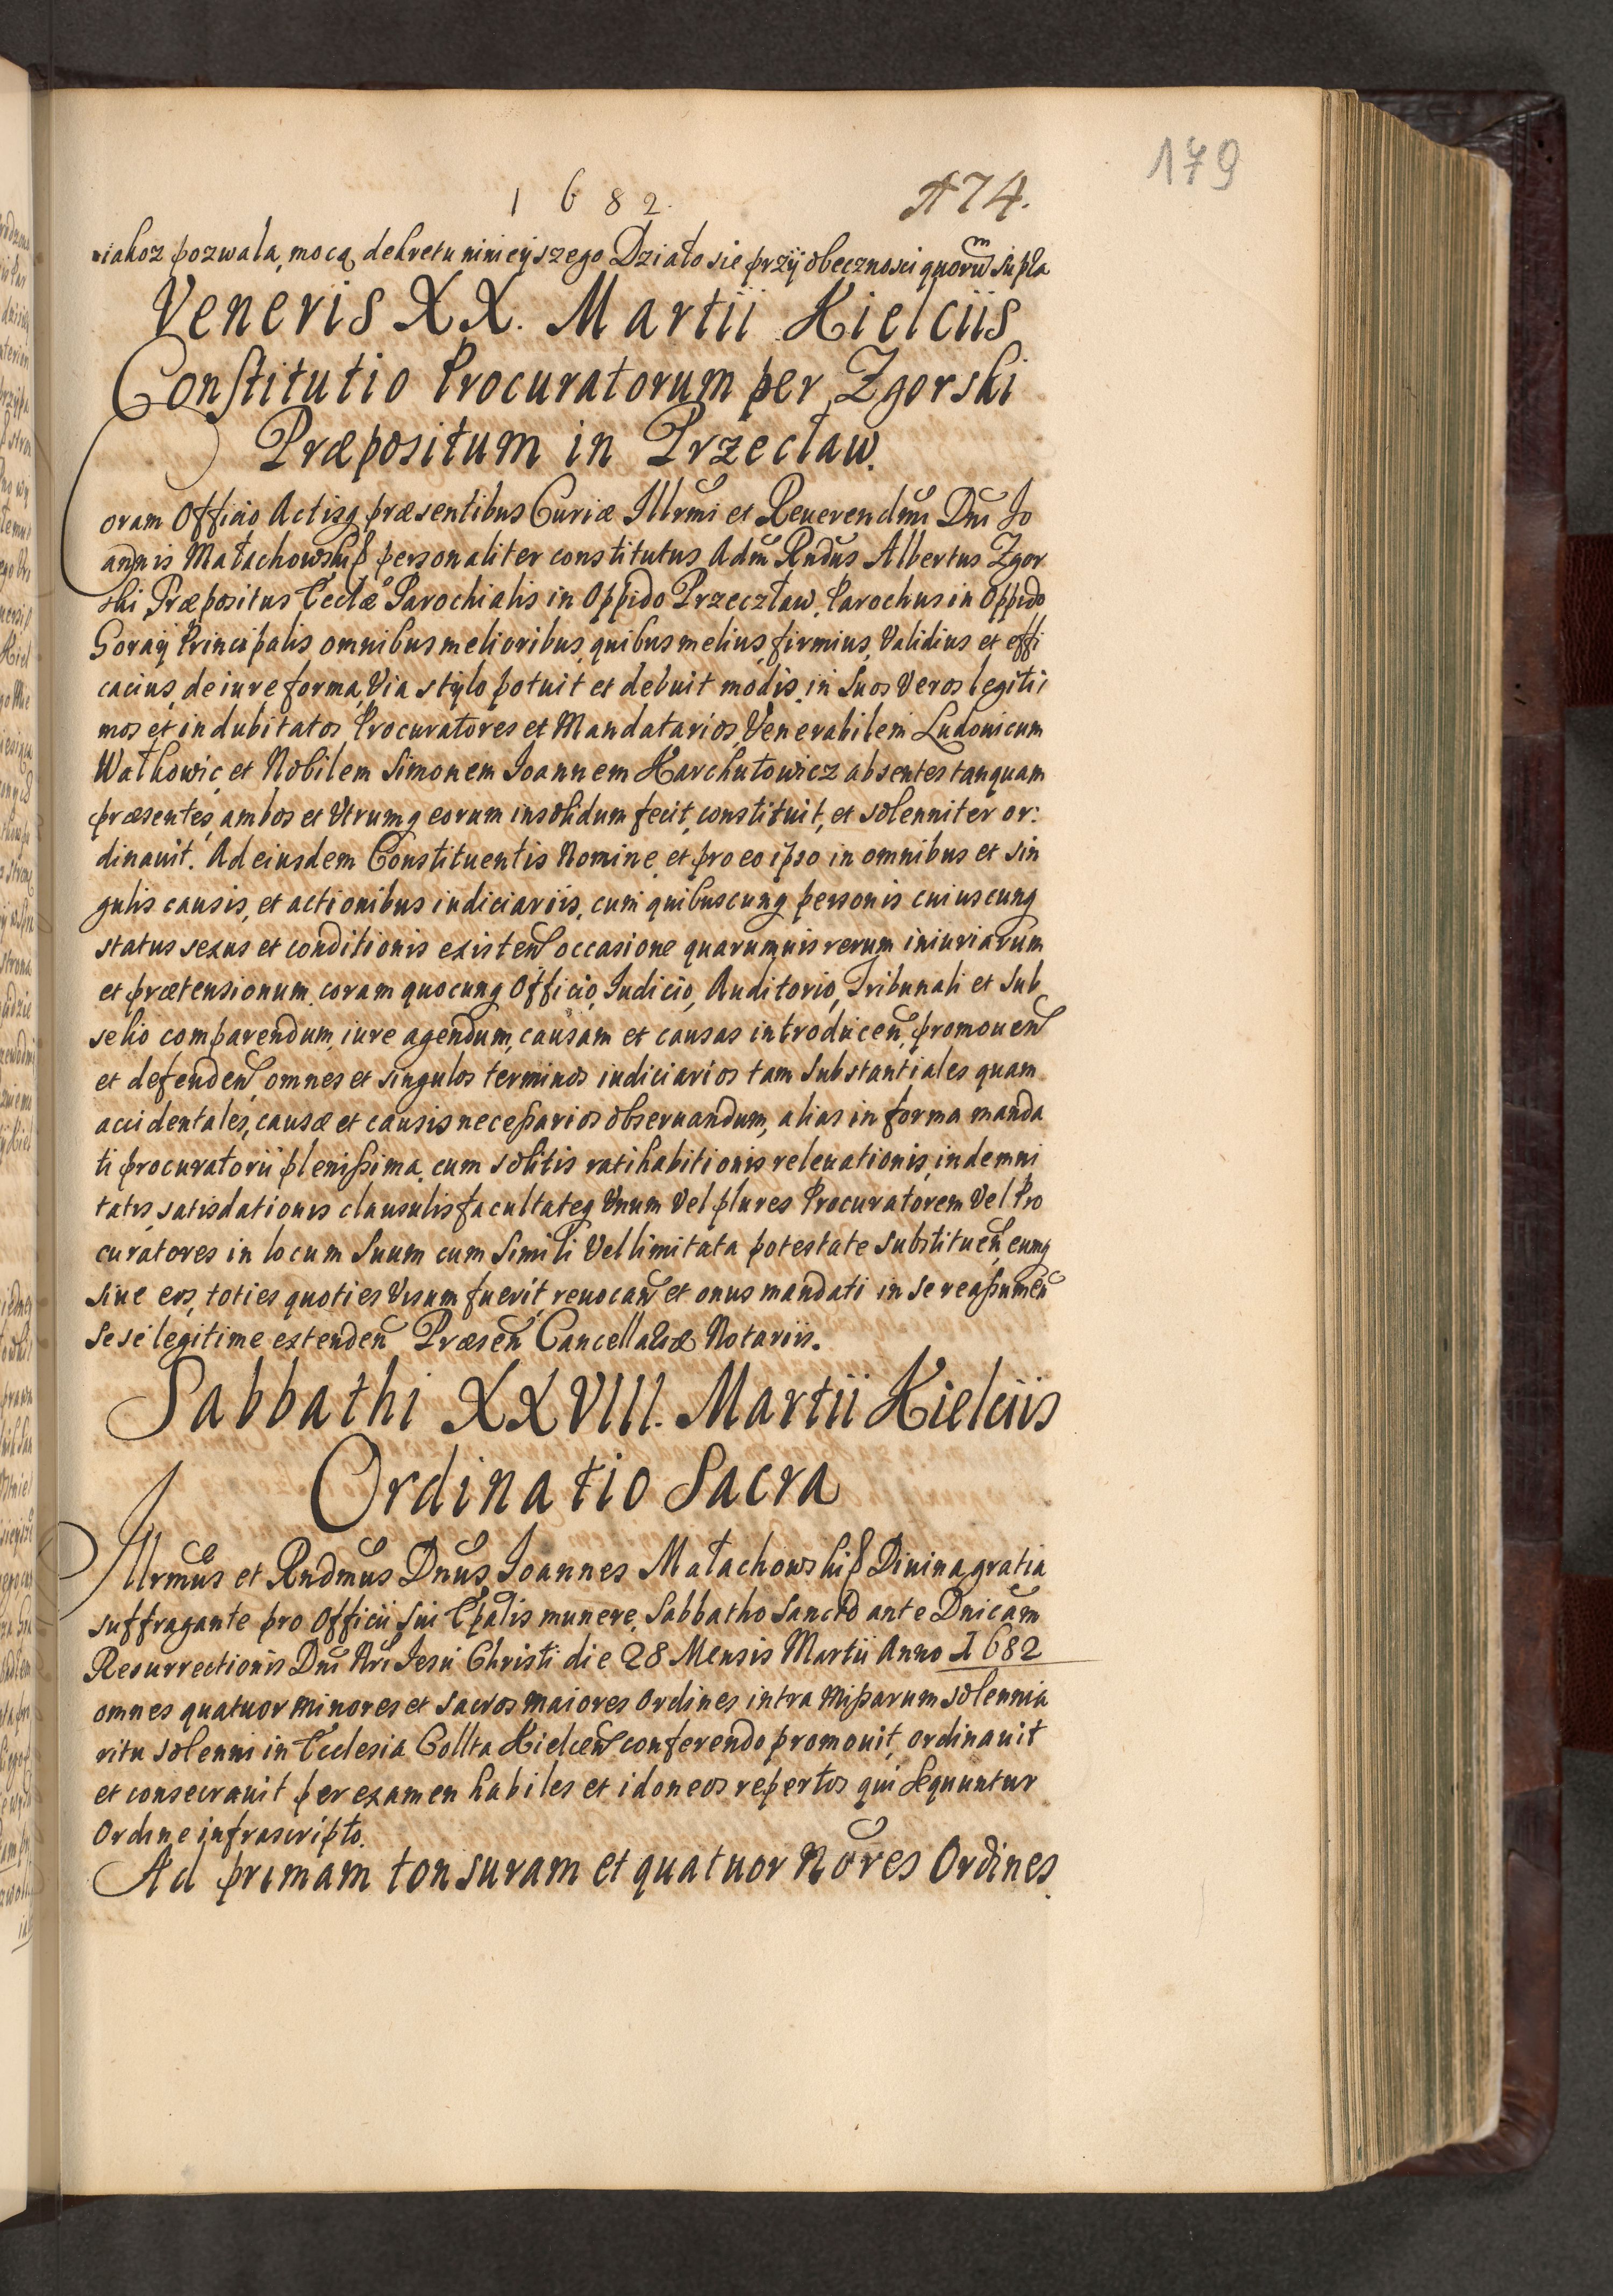 179
1682.
174.
iakoz pozwala, mocą dekretu ninieyszego Działo się przÿ obecznosci quorum supla
Veneris XX. Martii Kielciis
Constitutio Procuratorum per Zgorski
Præpositum in Przecław.
Coram Officio Actisq præsentibus Curiæ Illrmi et Reuerendmi Dni Jo
annis Małachowski personaliter constitutus Adm Rndus Albertus Zgor
ski Præpositus Eccłæ Parochialis in Oppido Przeczław, Parochus in Oppido
Goraÿ Principalis omnibus melioribus, quibus melius, firmius, Validius et effi
cacius, de iure forma, Via stÿlo potuit et debuit modis, in Suos Veros legiti
mos et indubitatos Procuratores et Mandatarios, Venerabilem Ludouicum
Wałkowic, et Nobilem Simonem Joannem Karchutowicz absentes tanquam
præsentes, ambos et Vtrumq eorum insolidum fecit, constituit, et solenniter or:
dinauit. Ad eiusdem Constituentis Nomine, et pro eo ipso in omnibus et sin
gulis causis, et actionibus iudiciariis, cum quibuscunq personis cuiuscunq
status sexus et conditionis existen occasione quarumuis rerum iniuriarum
et prætensionum, coram quocunq Officio, Iudicio, Auditorio, Tribunali et Sub
selio comparendum, iure agendum, causam et causas introducen, promouen
et defenden omnes et singulos terminos iudiciarios tam Substantiales quam
accidentales, causæ et causis necessarios obseruandum, alias in forma manda
ti procuratorii plenissima, cum solitis ratihabitionis releuationis, indemni
tatis, satisdationis clausulis facultateq Vnum Vel plures Procuratorem Vel Pro
curatores in locum Suum cum Simili Vel limitata potestate substituen, eunq
siue eos, toties quoties Visum fuerit, reuocan et onus mandati in se reassumen
Sese legitime extenden Præsen Cancellariæ Notariis.
Sabbathi XXVIII. Martii Kielciis
Ordinatio Sacra
Illrmus et Rndmus Dnus, Joannes Małachowski Diuina gratia
suffragante pro Officii Sui Epalis munere, Sabbatho Sancto ante Dnicam
Resurrectionis Dni Nri Iesu Christi die 28 Mensis Martii Anno 1682
omnes quatuor minores et sacros maiores Ordines intra missarum solennia
ritu solenni in Ecclesia Collta Kielcen conferendo promouit, ordinauit
et consecrauit per examen habiles et idoneos repertos qui Sequuntur
Ordine infrascripto.
Ad primam tonsuram et quatuor Nores Ordines